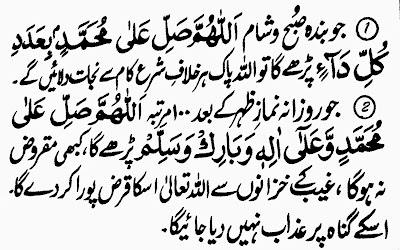 ① جو بندہ صُبح و شام اَللّٰھُمَّ صَلِّ عَلٰی مُحَمَّدٍ بِعَدَدِ
کُلِّ دَآءٍ پڑھے گا تو اللہ پاک ہر خلافِ شرع کام سے نجات دلائیں گے۔
② جو روزانہ نمازِ ظہر کے بعد ۱۰۰ مرتبہ اَللّٰھُمَّ صَلِّ عَلٰی
مُحَمَّدٍ وَّعَلٰی اٰلِهٖ وَبَارِکْ وَسَلِّمْ پڑھے گا، کبھی مقروض
نہ ہوگا، غیب کے خزانوں سے اللہ تعالیٰ اسکا قرض پورا کر دے گا۔
اسکے گناہ پر عذاب نہیں دیا جائیگا۔